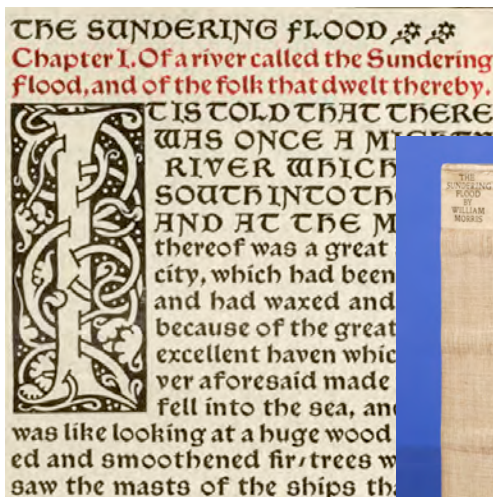 THE SUNDERING FLOOD
Chapter I. Of a river called the Sundering
Flood, and of the folk that dwelt thereby.
IT IS TOLD THAT THERE
WAS ONCE A MIGHTY
RIVER WHICH
SOUTH INTO
AND AT THE
thereof was a great
city, which had been
and had waxed and
because of the great
excellent haven
ver aforesaid made
fell into the sea,
was like looking at a huge wood
ed and smoothened fir-trees
saw the masts of the ships
THE
SUNDERING
FLOOD
BY
WILLIAM
MORRIS